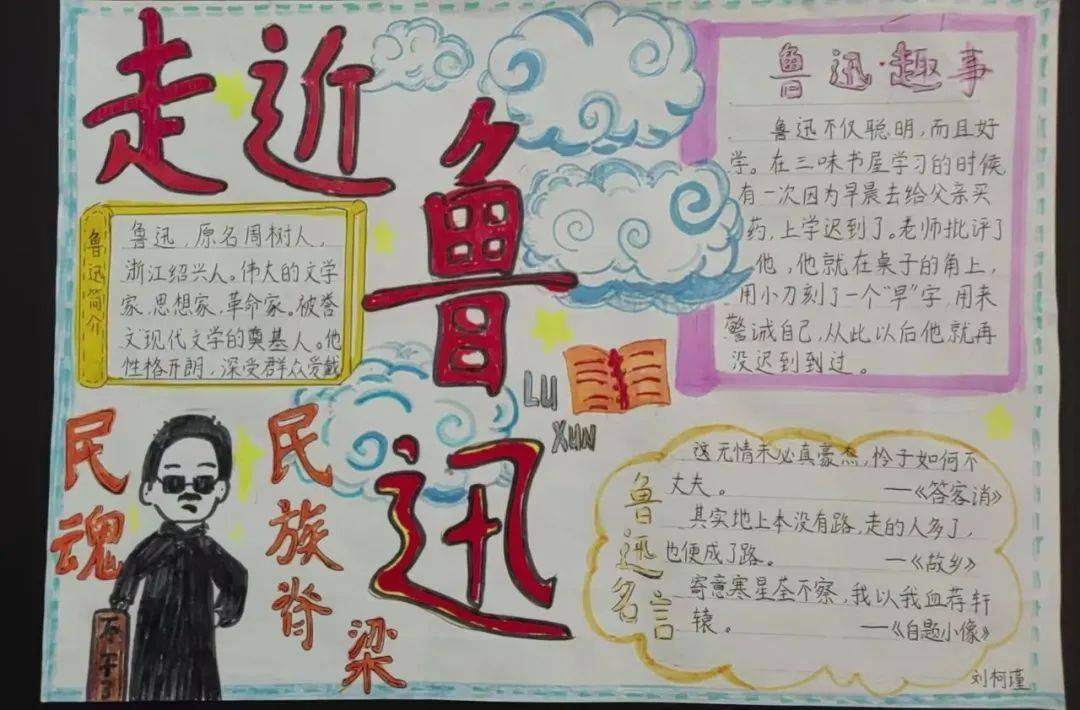 走近
鲁迅
LU
XUN
鲁迅简介
鲁迅，原名周树人，
浙江绍兴人。伟大的文学
家，思想家，革命家。被誉
文现代文学的奠基人。他
性格开朗，深受群众受戴
民魂
民族脊梁
鲁迅·趣事
鲁迅不仅聪明，而且好
学。在三味书屋学习的时候，
有一次因为早晨去给父亲买
药，上学迟到了。老师批评了
他，他就在桌子的角上，
用小刀刻了一个“早”字，用来
警诫自己，从此以后他就再
没迟到到过。
鲁迅名言
这无情未必真豪杰，怜子如何不
丈夫。 —《答客诮》
其实地上本没有路，走的人多了，
也便成了路。 —《故乡》
寄意寒星荃不察，我以我血荐轩
辕。 —《自题小像》
刘柯瑾